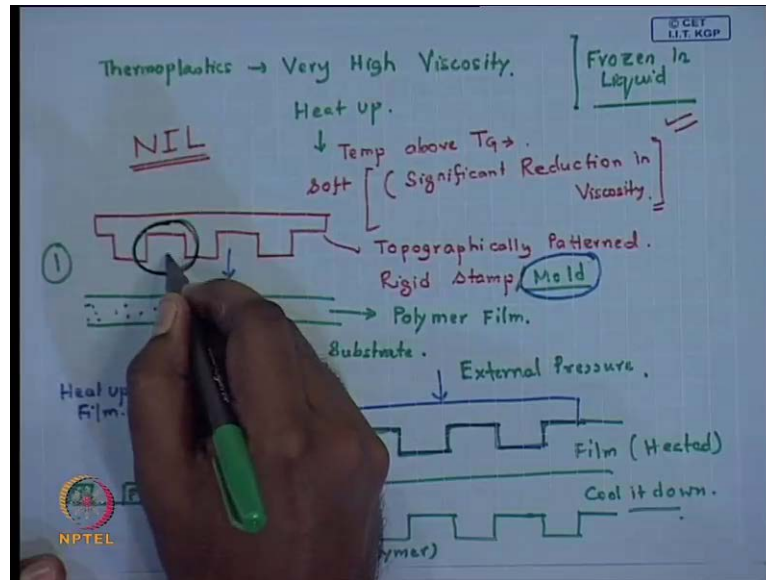 © CET
I.I.T. KGP
Thermoplastics → Very High Viscosity.
Frozen In
Liquid
Heat up.
NIL
↓ Temp above TG →.
Soft [ ( Significant Reduction in
Viscosity. ]
Topographically Patterned.
Rigid Stamp, Mold
1
→ Polymer Film.
Substrate.
External Pressure.
Heat up
Film.
Film (Heated)
Cool it down.
NPTEL